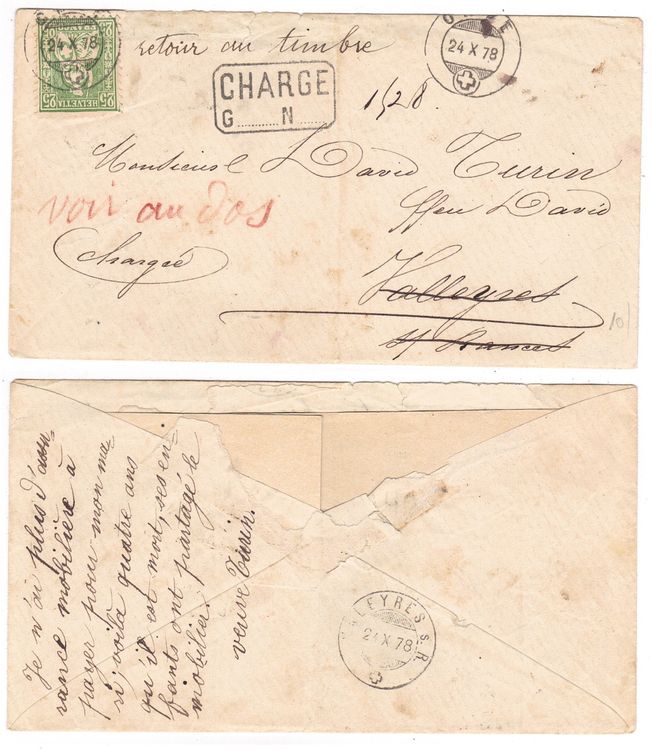 24 X 78
HELVETIA
25 25
FRANCO
retour au timbre
24 X 78
CHARGE
G.......... N......
1528.
Monsieur David Turin
ffeu David
voir au dos
Chargé
Valleyres
s/ Rances
10/
Je n'ai plus d'assu-
rance mobilière à
payer pour mon ma-
ri; voilà quatre ans
qu'il est mort, ses en-
fants ont partagé le
mobilier.
veuve Turin.
VALEYRES S. R.
24 X 78